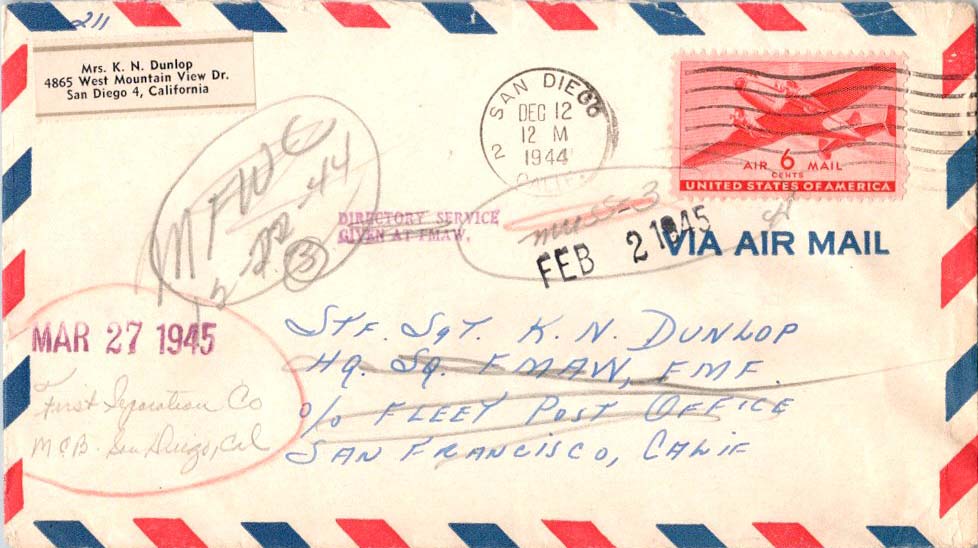 211
Mrs. K. N. Dunlop
4865 West Mountain View Dr.
San Diego 4, California
SAN DIEGO
2
DEC 12
12 M
1944
CALIF.
AIR 6 MAIL
CENTS
UNITED STATES OF AMERICA
MFWC
12-22-44
3
DIRECTORY SERVICE
GIVEN AT FMAW.
FEB 2 1945
VIA AIR MAIL
MAR 27 1945
First Separation Co
MCB. San Diego, Cal
STF. SGT. K. N. DUNLOP
HQ. SQ. FMAW, FMF.
c/o FLEET POST OFFICE
SAN FRANCISCO, CALIF